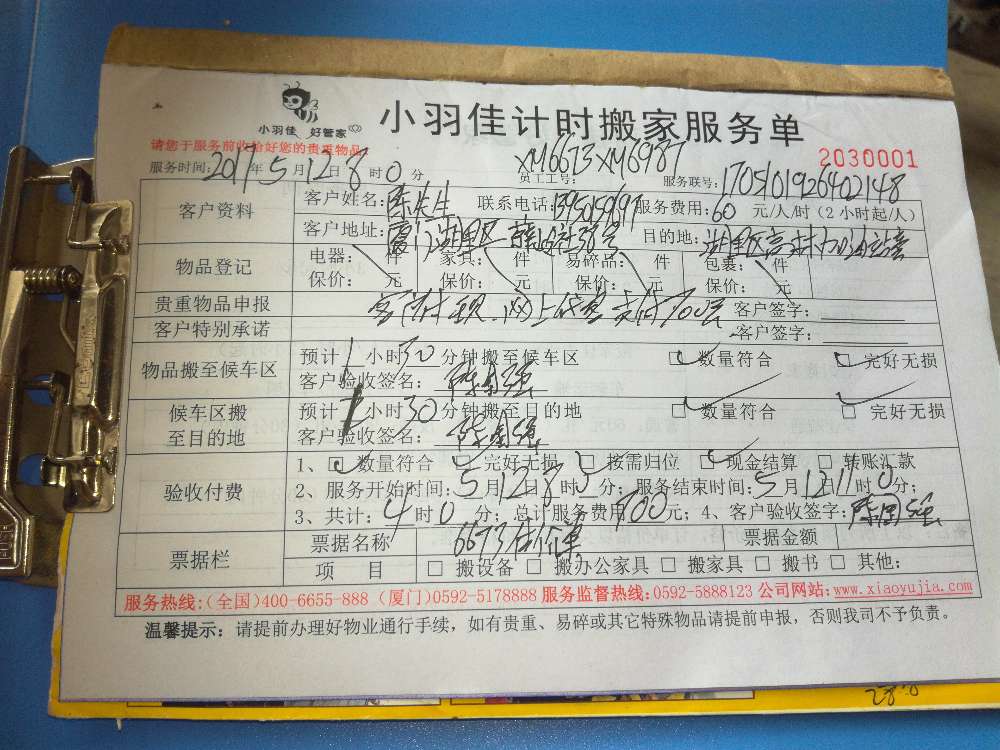 小羽佳 好管家
小羽佳计时搬家服务单
请您于服务前收拾好您的贵重物品
2030001
XM6673 XM6987
服务时间:2017年5月12日8时0分 员工工号: 服务联号:1705101926402148
客户资料
客户姓名:陈先生 联系电话: 服务费用:60元/人/时(2小时起/人)
客户地址:厦门湖里区 目的地:湖里区
物品登记
电器: 件 家具: 件 易碎品: 件 包裹: 件
保价: 元 保价: 元 保价: 元 保价: 元
贵重物品申报 客户签字:
客户特别承诺 客户签字:
物品搬至候车区
预计1小时30分钟搬至候车区 数量符合 完好无损
客户验收签名:陈国强
候车区搬至目的地
预计1小时30分钟搬至目的地 数量符合 完好无损
客户验收签名:陈国强
验收付费
1、 数量符合 完好无损 按需归位 现金结算 转账汇款
2、服务开始时间:5月12日8时0分;服务结束时间:5月12日11时0分;
3、共计:4时0分;总计服务费用700元;4、客户验收签字:陈国强
票据栏
票据名称 6673 票据金额
项 目 搬设备 搬办公家具 搬家具 搬书 其他:
服务热线:(全国)400-6655-888 (厦门)0592-5178888 服务监督热线:0592-5888123 公司网站:www.xiaoyujia.com
温馨提示:请提前办理好物业通行手续,如有贵重、易碎或其它特殊物品请提前申报,否则我司不予负责。